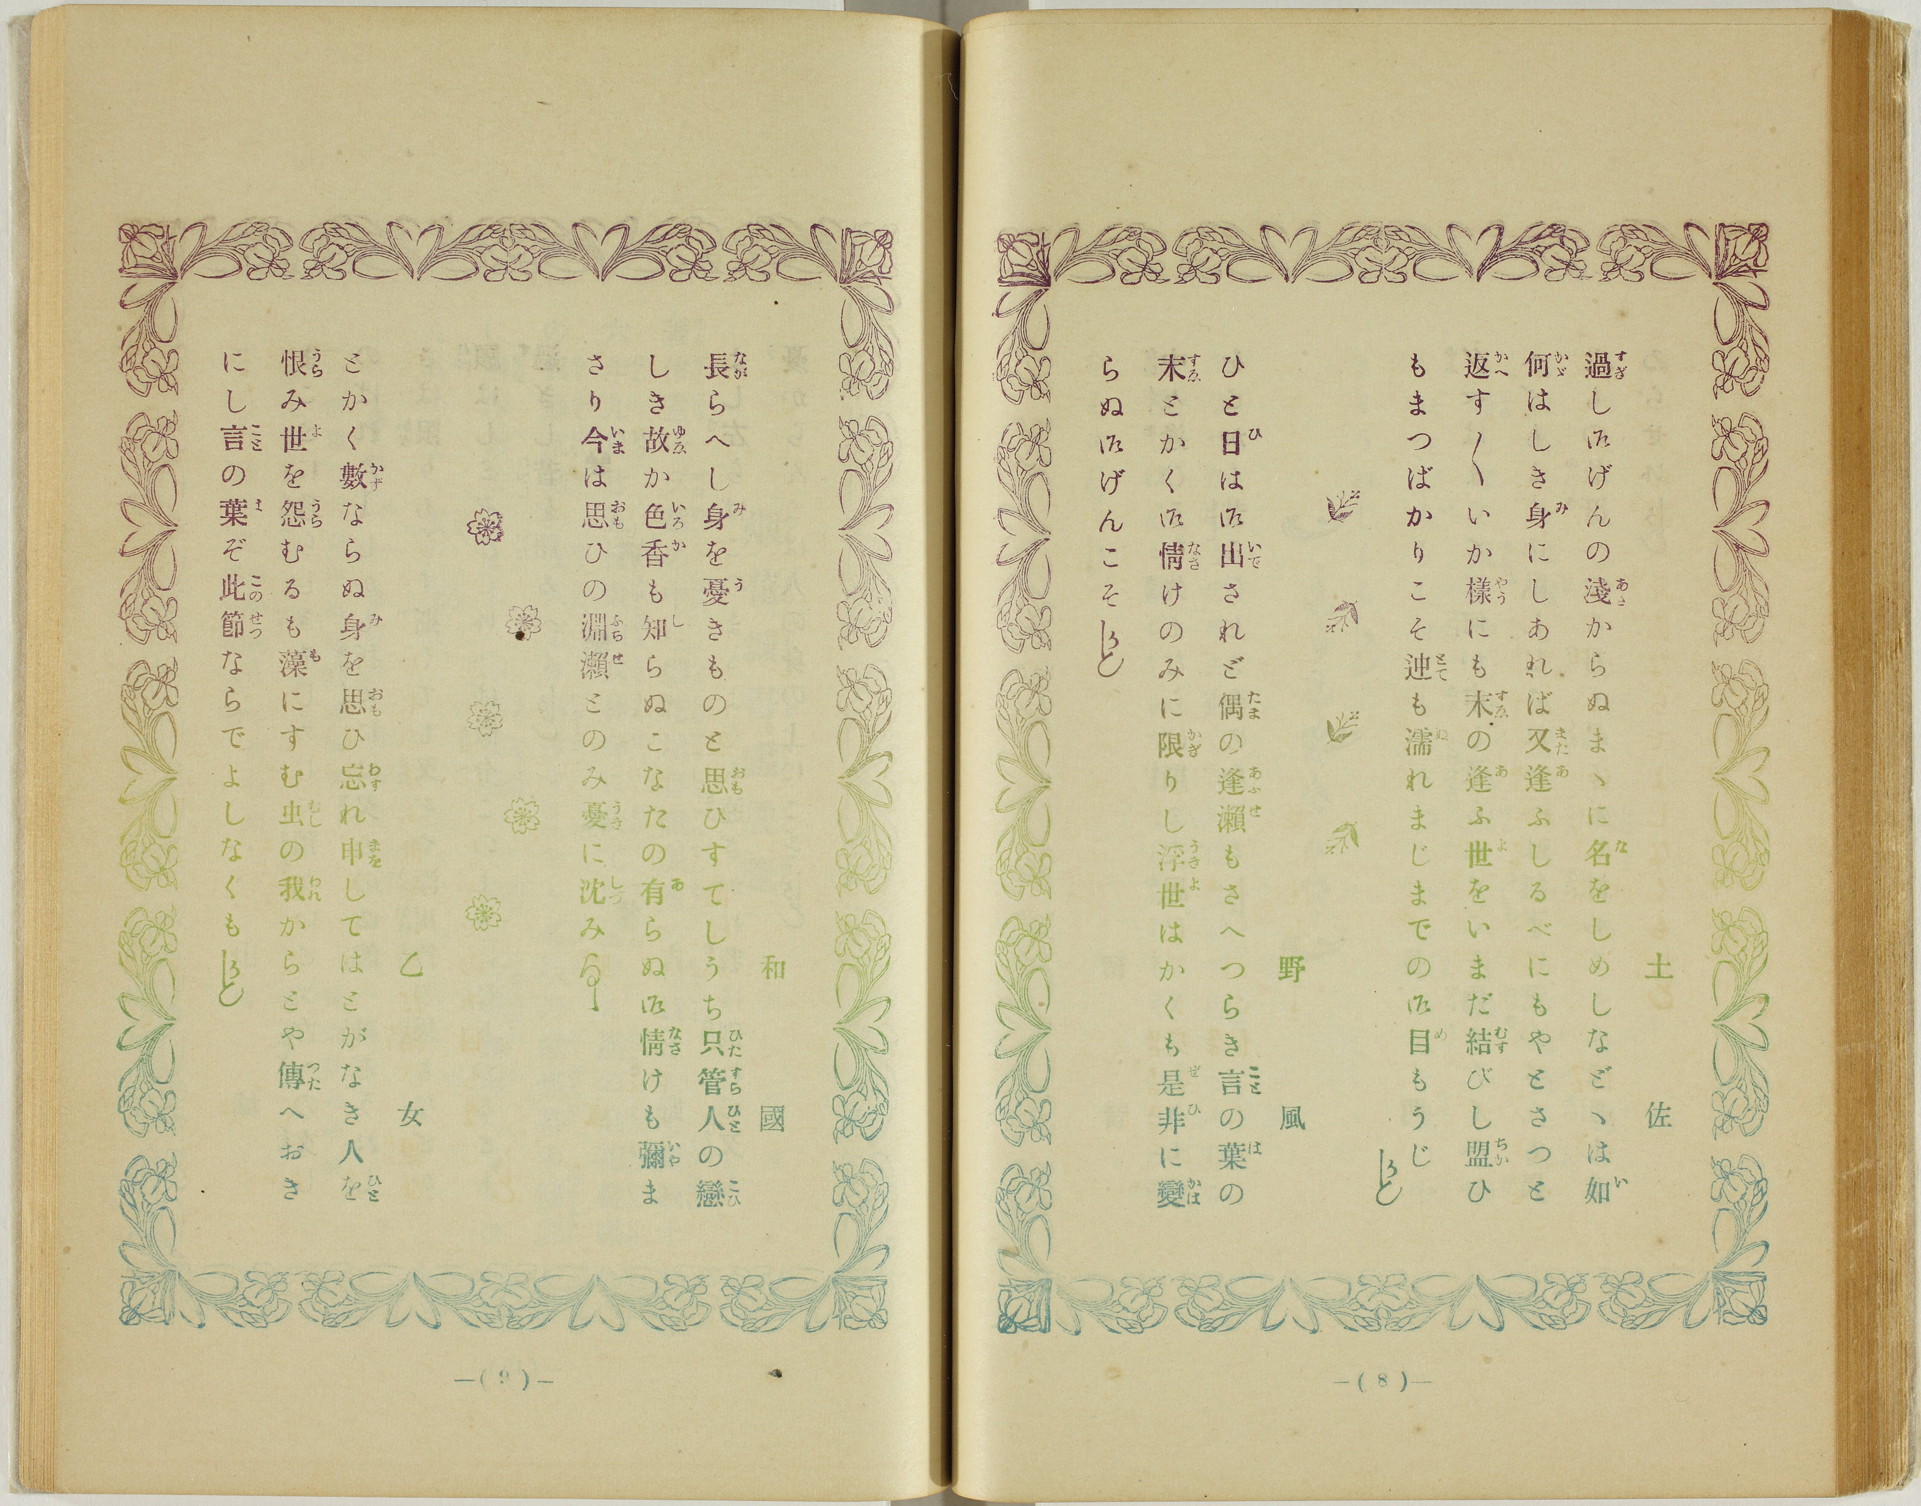 土佐
過し御げんの淺からぬまゝに名をしめしなどゝは如
何はしき身にしあれば又逢ふしるべにもやとさつと
返す〳〵いか樣にも末の逢ふ世をいまだ結びし盟ひ
もまつばかりこそ迚も濡れまじまでの御目もうじ
かしこ
野風
ひと日は御出されど偶の逢瀬もさへつらき言の葉の
末とかく御情けのみに限りし浮世はかくも是非に變
らぬ御げんこそかしこ
―(8)―
和國
長らへし身を憂きものと思ひすてしうち只管人の戀
しき故か色香も知らぬこなたの有らぬ御情けも彌ま
さり今は思ひの淵瀬とのみ憂に沈みゐ
乙女
とかく數ならぬ身を思ひ忘れ申してはとがなき人を
恨み世を怨むるも藻にすむ虫の我からとや傳へおき
にし言の葉ぞ此節ならでよしなくもかしこ
―(9)―